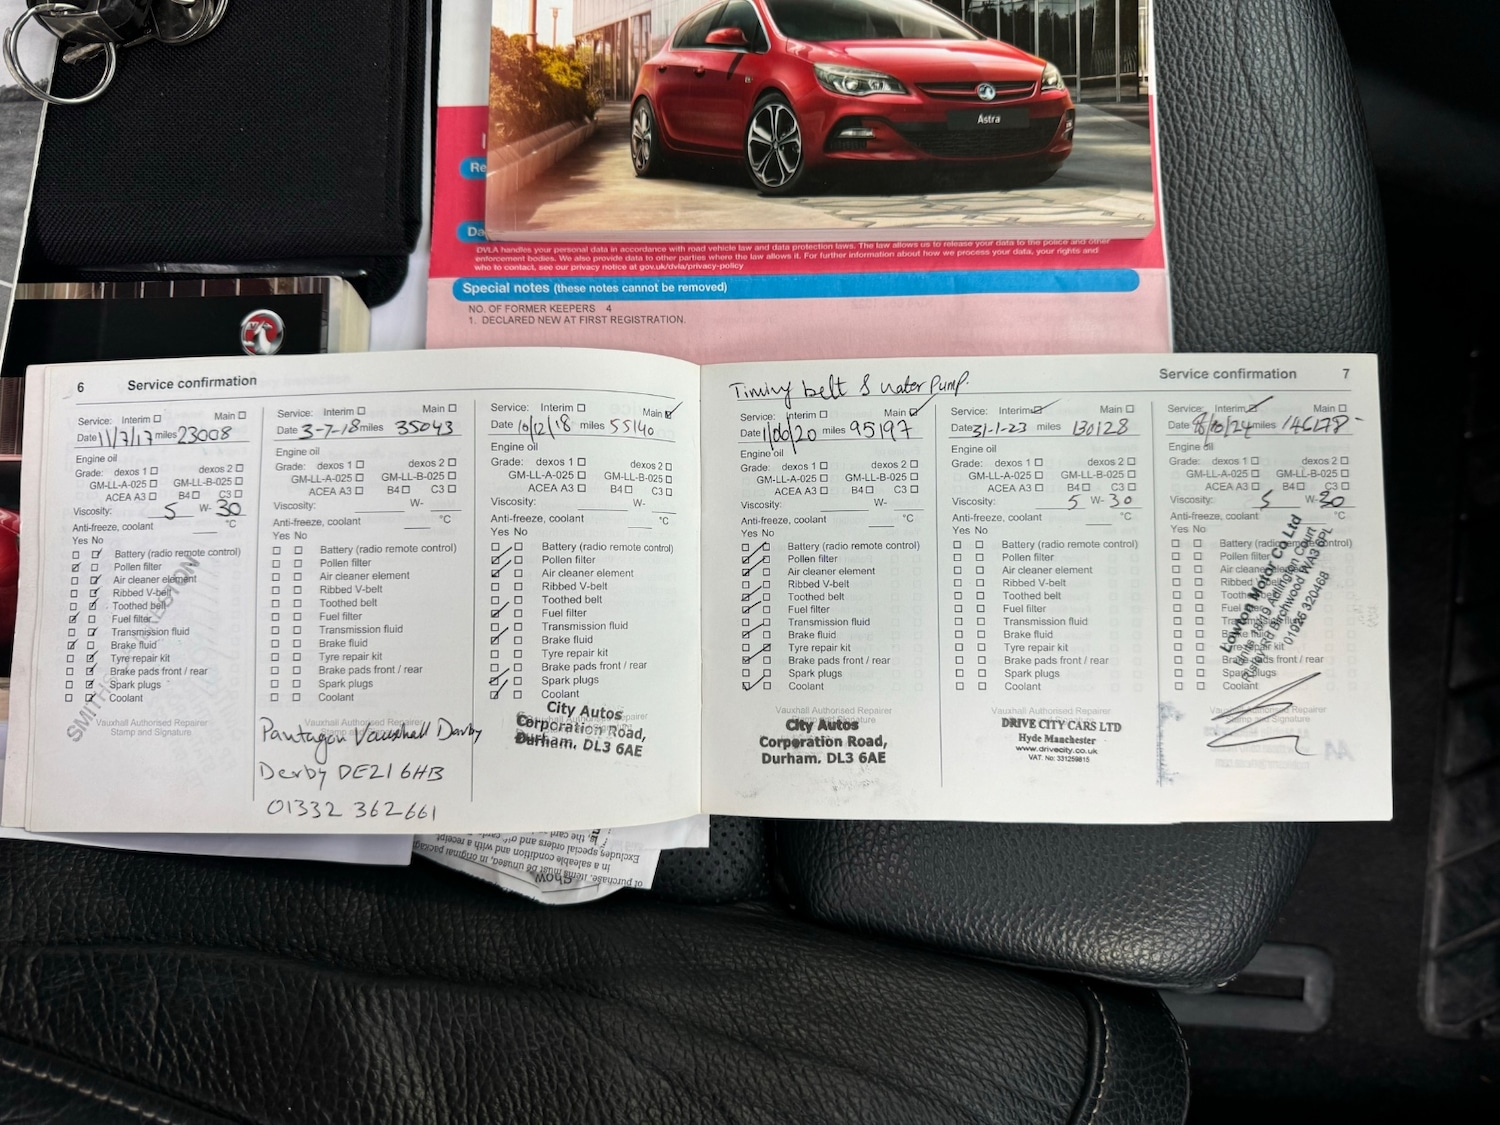 Astra
Re
Da
DVLA handles your personal data in accordance with road vehicle law and data protection laws. The law allows us to release your data to the police and other
enforcement bodies. We also provide data to other parties where the law allows it. For further information about how we process your data, your rights and
who to contact, see our privacy notice at gov.uk/dvla/privacy-policy
Special notes (these notes cannot be removed)
NO. OF FORMER KEEPERS 4
1. DECLARED NEW AT FIRST REGISTRATION.
6 Service confirmation
Service: Interim Main
Date 11/7/17 miles 23008
Engine oil
Grade: dexos 1 dexos 2
GM-LL-A-025 GM-LL-B-025
ACEA A3 B4 C3
Viscosity: 5 W- 30
Anti-freeze, coolant °C
Yes No
Battery (radio remote control)
Pollen filter
Air cleaner element
Ribbed V-belt
Toothed belt
Fuel filter
Transmission fluid
Brake fluid
Tyre repair kit
Brake pads front / rear
Spark plugs
Coolant
Vauxhall Authorised Repairer
Stamp and Signature
Service: Interim Main
Date 3-7-18 miles 35043
Engine oil
Grade: dexos 1 dexos 2
GM-LL-A-025 GM-LL-B-025
ACEA A3 B4 C3
Viscosity: W-
Anti-freeze, coolant °C
Yes No
Battery (radio remote control)
Pollen filter
Air cleaner element
Ribbed V-belt
Toothed belt
Fuel filter
Transmission fluid
Brake fluid
Tyre repair kit
Brake pads front / rear
Spark plugs
Coolant
Vauxhall Authorised Repairer
Stamp and Signature
Pantagon Vauxhall Derby
Derby DE21 6HB
01332 362661
Service: Interim Main
Date 10/12/18 miles 55140
Engine oil
Grade: dexos 1 dexos 2
GM-LL-A-025 GM-LL-B-025
ACEA A3 B4 C3
Viscosity: W-
Anti-freeze, coolant °C
Yes No
Battery (radio remote control)
Pollen filter
Air cleaner element
Ribbed V-belt
Toothed belt
Fuel filter
Transmission fluid
Brake fluid
Tyre repair kit
Brake pads front / rear
Spark plugs
Coolant
City Autos
Corporation Road,
Durham. DL3 6AE
Service confirmation 7
Timing belt & water pump.
Service: Interim Main
Date miles 95197
Engine oil
Grade: dexos 1 dexos 2
GM-LL-A-025 GM-LL-B-025
ACEA A3 B4 C3
Viscosity: W-
Anti-freeze, coolant °C
Yes No
Battery (radio remote control)
Pollen filter
Air cleaner element
Ribbed V-belt
Toothed belt
Fuel filter
Transmission fluid
Brake fluid
Tyre repair kit
Brake pads front / rear
Spark plugs
Coolant
Vauxhall Authorised Repairer
City Autos
Corporation Road,
Durham. DL3 6AE
Service: Interim Main
Date 31-1-23 miles 130128
Engine oil
Grade: dexos 1 dexos 2
GM-LL-A-025 GM-LL-B-025
ACEA A3 B4 C3
Viscosity: 5 W- 30
Anti-freeze, coolant °C
Yes No
Battery (radio remote control)
Pollen filter
Air cleaner element
Ribbed V-belt
Toothed belt
Fuel filter
Transmission fluid
Brake fluid
Tyre repair kit
Brake pads front / rear
Spark plugs
Coolant
Vauxhall Authorised Repairer
DRIVE CITY CARS LTD
Hyde Manchester
www.drivecity.co.uk
VAT. No: 331259815
Service: Interim Main
Date miles 146178
Engine oil
Grade: dexos 1 dexos 2
GM-LL-A-025 GM-LL-B-025
ACEA A3 B4 C3
Viscosity: 5 W- 30
Anti-freeze, coolant °C
Yes No
Battery (radio remote control)
Pollen filter
Air cleaner element
Ribbed V-belt
Toothed belt
Fuel filter
Brake fluid
Tyre repair kit
Brake pads front / rear
Spark plugs
Coolant
Lowton Motor Co Ltd
Units 18/19 Adlington Court
Risley Rd Birchwood WA3 6PL
01925 320468
of purchase, items must be unused, in original packag
in a saleable condition and with a receipt
Excludes special orders and